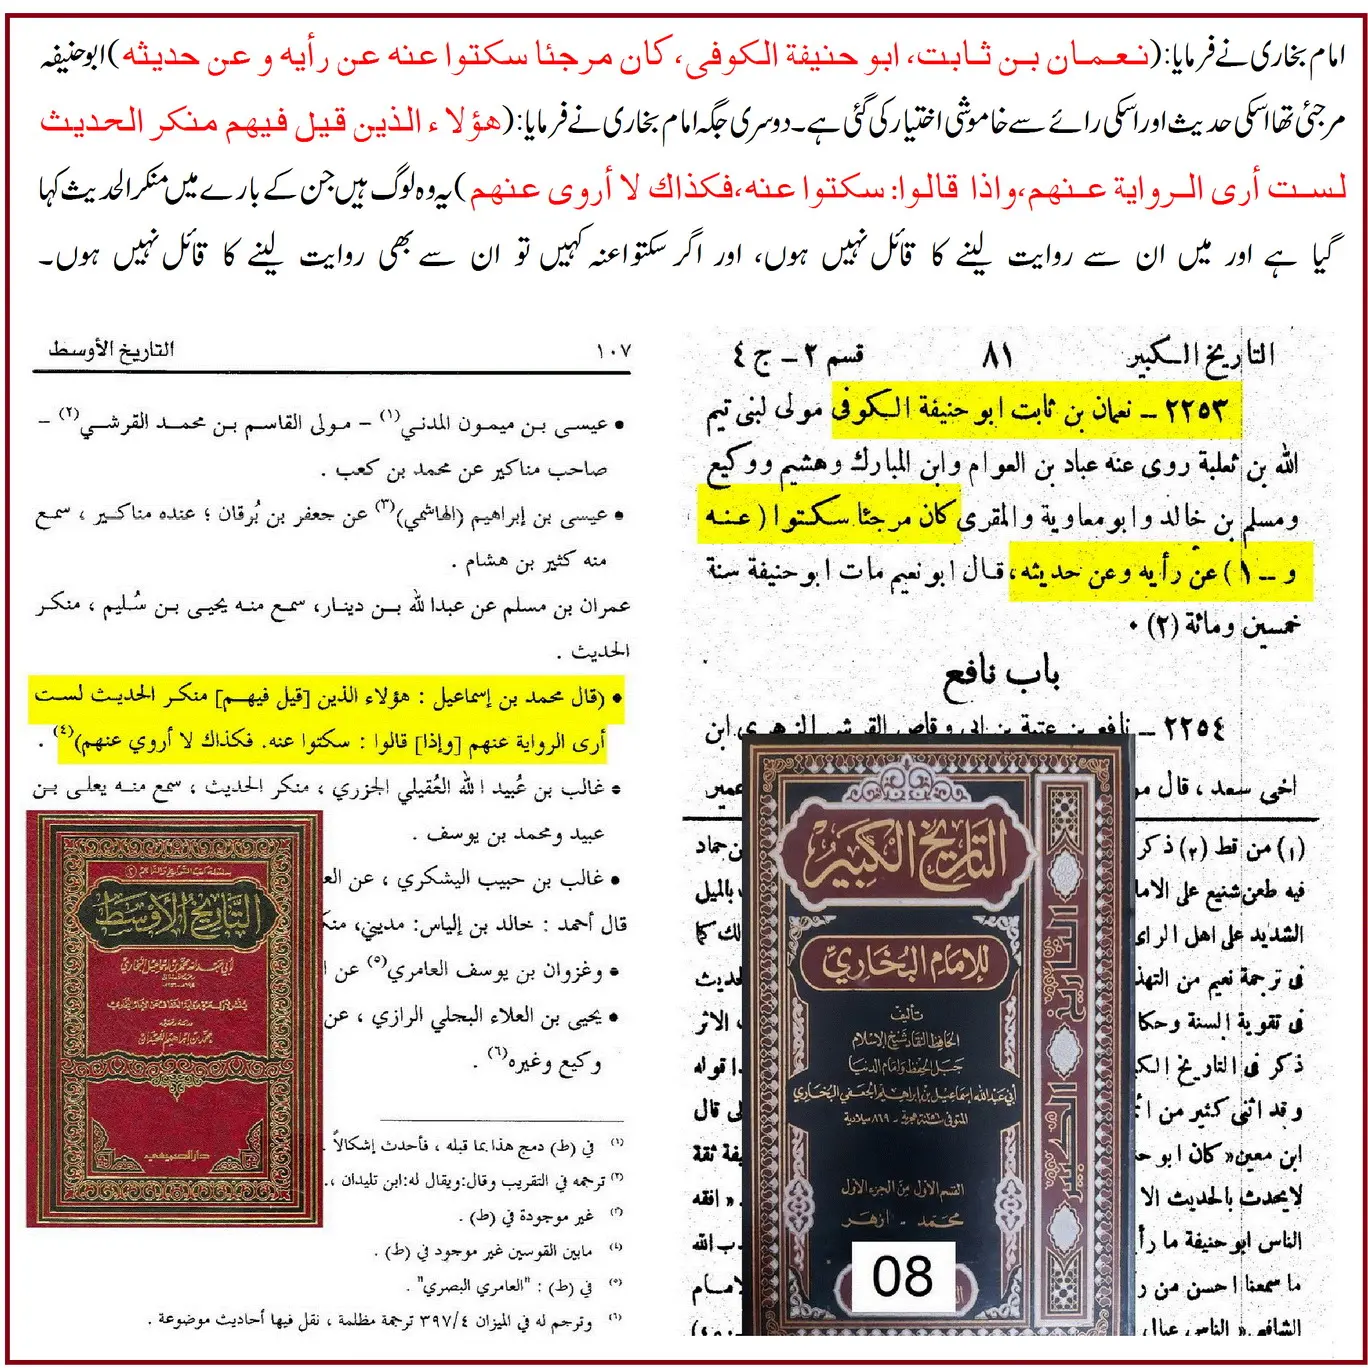 امام بخاری نے فرمایا: (نعمان بن ثابت، ابو حنیفة الکوفی، کان مرجئا سکتوا عنه عن رأیه و عن حدیثه) ابو حنیفہ
مرجئی تھا اسکی حدیث اور اسکی رائے سے خاموشی اختیار کی گئی ہے۔ دوسری جگہ امام بخاری نے فرمایا: (هؤلاء الذین قیل فیهم منکر الحدیث
لست أری الروایة عنهم، واذا قالوا: سکتوا عنه، فکذاك لا أروی عنهم) یہ وہ لوگ ہیں جن کے بارے میں منکر الحدیث کہا
گیا ہے اور میں ان سے روایت لینے کا قائل نہیں ہوں، اور اگر سکتوا عنہ کہیں تو ان سے بھی روایت لینے کا قائل نہیں ہوں۔
التاريخ الكبير ٨١ قسم ٢ – ج ٤
٢٢٥٣ – نعمان بن ثابت ابو حنيفة الكوفى مولى لبنى تيم
الله بن ثعلبة روى عنه عباد بن العوام وابن المبارك وهشيم ووكيع
ومسلم بن خالد وابو معاوية والمقرى كان مرجئا سكتوا (عنه
و – ١) عن رأيه وعن حديثه، قال ابو نعيم مات ابو حنيفة سنة
خمسين ومائة (٢) ٠
باب نافع
٢٢٥٤ – نافع بن عتبة بن ابى وقاص القرشى الزهرى ابن
اخى سعد ، قال
عمير
(١) من قط (٢) ذكر
بن حماد
فيه طعن شنيع على الاما
بالميل
الشديد على اهل الراى
لك كما
فى ترجمة نعيم من التهذ
لحديث
فى تقوية السنة وحكا
الاثر
ذكر فى التاريخ الك
ا قوله
و قد اثنى كثير من ائ
ى قال
ابن معين « كان ابو ح
يفة ثقة
لا يحدث بالحديث الا
« افقه
الناس ابو حنيفة ما رأ
ب الله
ما سمعنا احسن من ر
امام
الشافعى « الناس عيال
التاريخ الكبير
للإمام البخاري
تأليف
الحافظ النقاد شيخ الإسلام
جبل الحفظ وإمام الدنيا
أبي عبدالله إسماعيل بن إبراهيم الجعفي البخاري
المتوفى سنة ٢٥٦ هجرية - ٨٦٩ ميلادية
القسم الأول من الجزء الأول
محمد - ازهر
08
التاريخ الكبير
١٠٧ التاريخ الأوسط
• عيسى بن ميمون المدني(١) – مولى القاسم بن محمد القرشي(٢) –
صاحب مناكير عن محمد بن كعب .
• عيسى بن إبراهيم (الهاشمي)(٣) عن جعفر بن بُرقان ؛ عنده مناكير ، سمع
منه كثير بن هشام .
عمران بن مسلم عن عبدالله بن دينار، سمع منه يحيى بن سُليم ، منكر
الحديث .
• (قال محمد بن إسماعيل : هؤلاء الذين [قيل فيهم] منكر الحديث لست
أرى الرواية عنهم [وإذا] قالوا : سكتوا عنه. فكذاك لا أروي عنهم)(٤) .
• غالب بن عُبيد الله العُقيلي الجزري ، منكر الحديث ، سمع منه يعلى بن
عبيد ومحمد بن يوسف .
• غالب بن حبيب اليشكري ، عن الع
قال أحمد : خالد بن إلياس: مديني، منك
• وغزوان بن يوسف العامري(٥) عن ا
• يحيى بن العلاء البجلي الرازي ، عن
وكيع وغيره(٦) .
(١) في (ط) دمج هذا بما قبله ، فأحدث إشكالاً .
(٢) ترجمه في التقريب وقال:ويقال له:ابن تليدان ،.
(٣) غير موجودة في (ط) .
(٤) مابين القوسين غير موجود في (ط) .
(٥) في (ط) : "العامري البصري" .
(٦) وترجم له في الميزان ٣٩٧/٤ ترجمة مظلمة ، نقل فيها أحاديث موضوعة .
التاريخ الأوسط
محمد بن إبراهيم اللحيدان
دار الصميعي